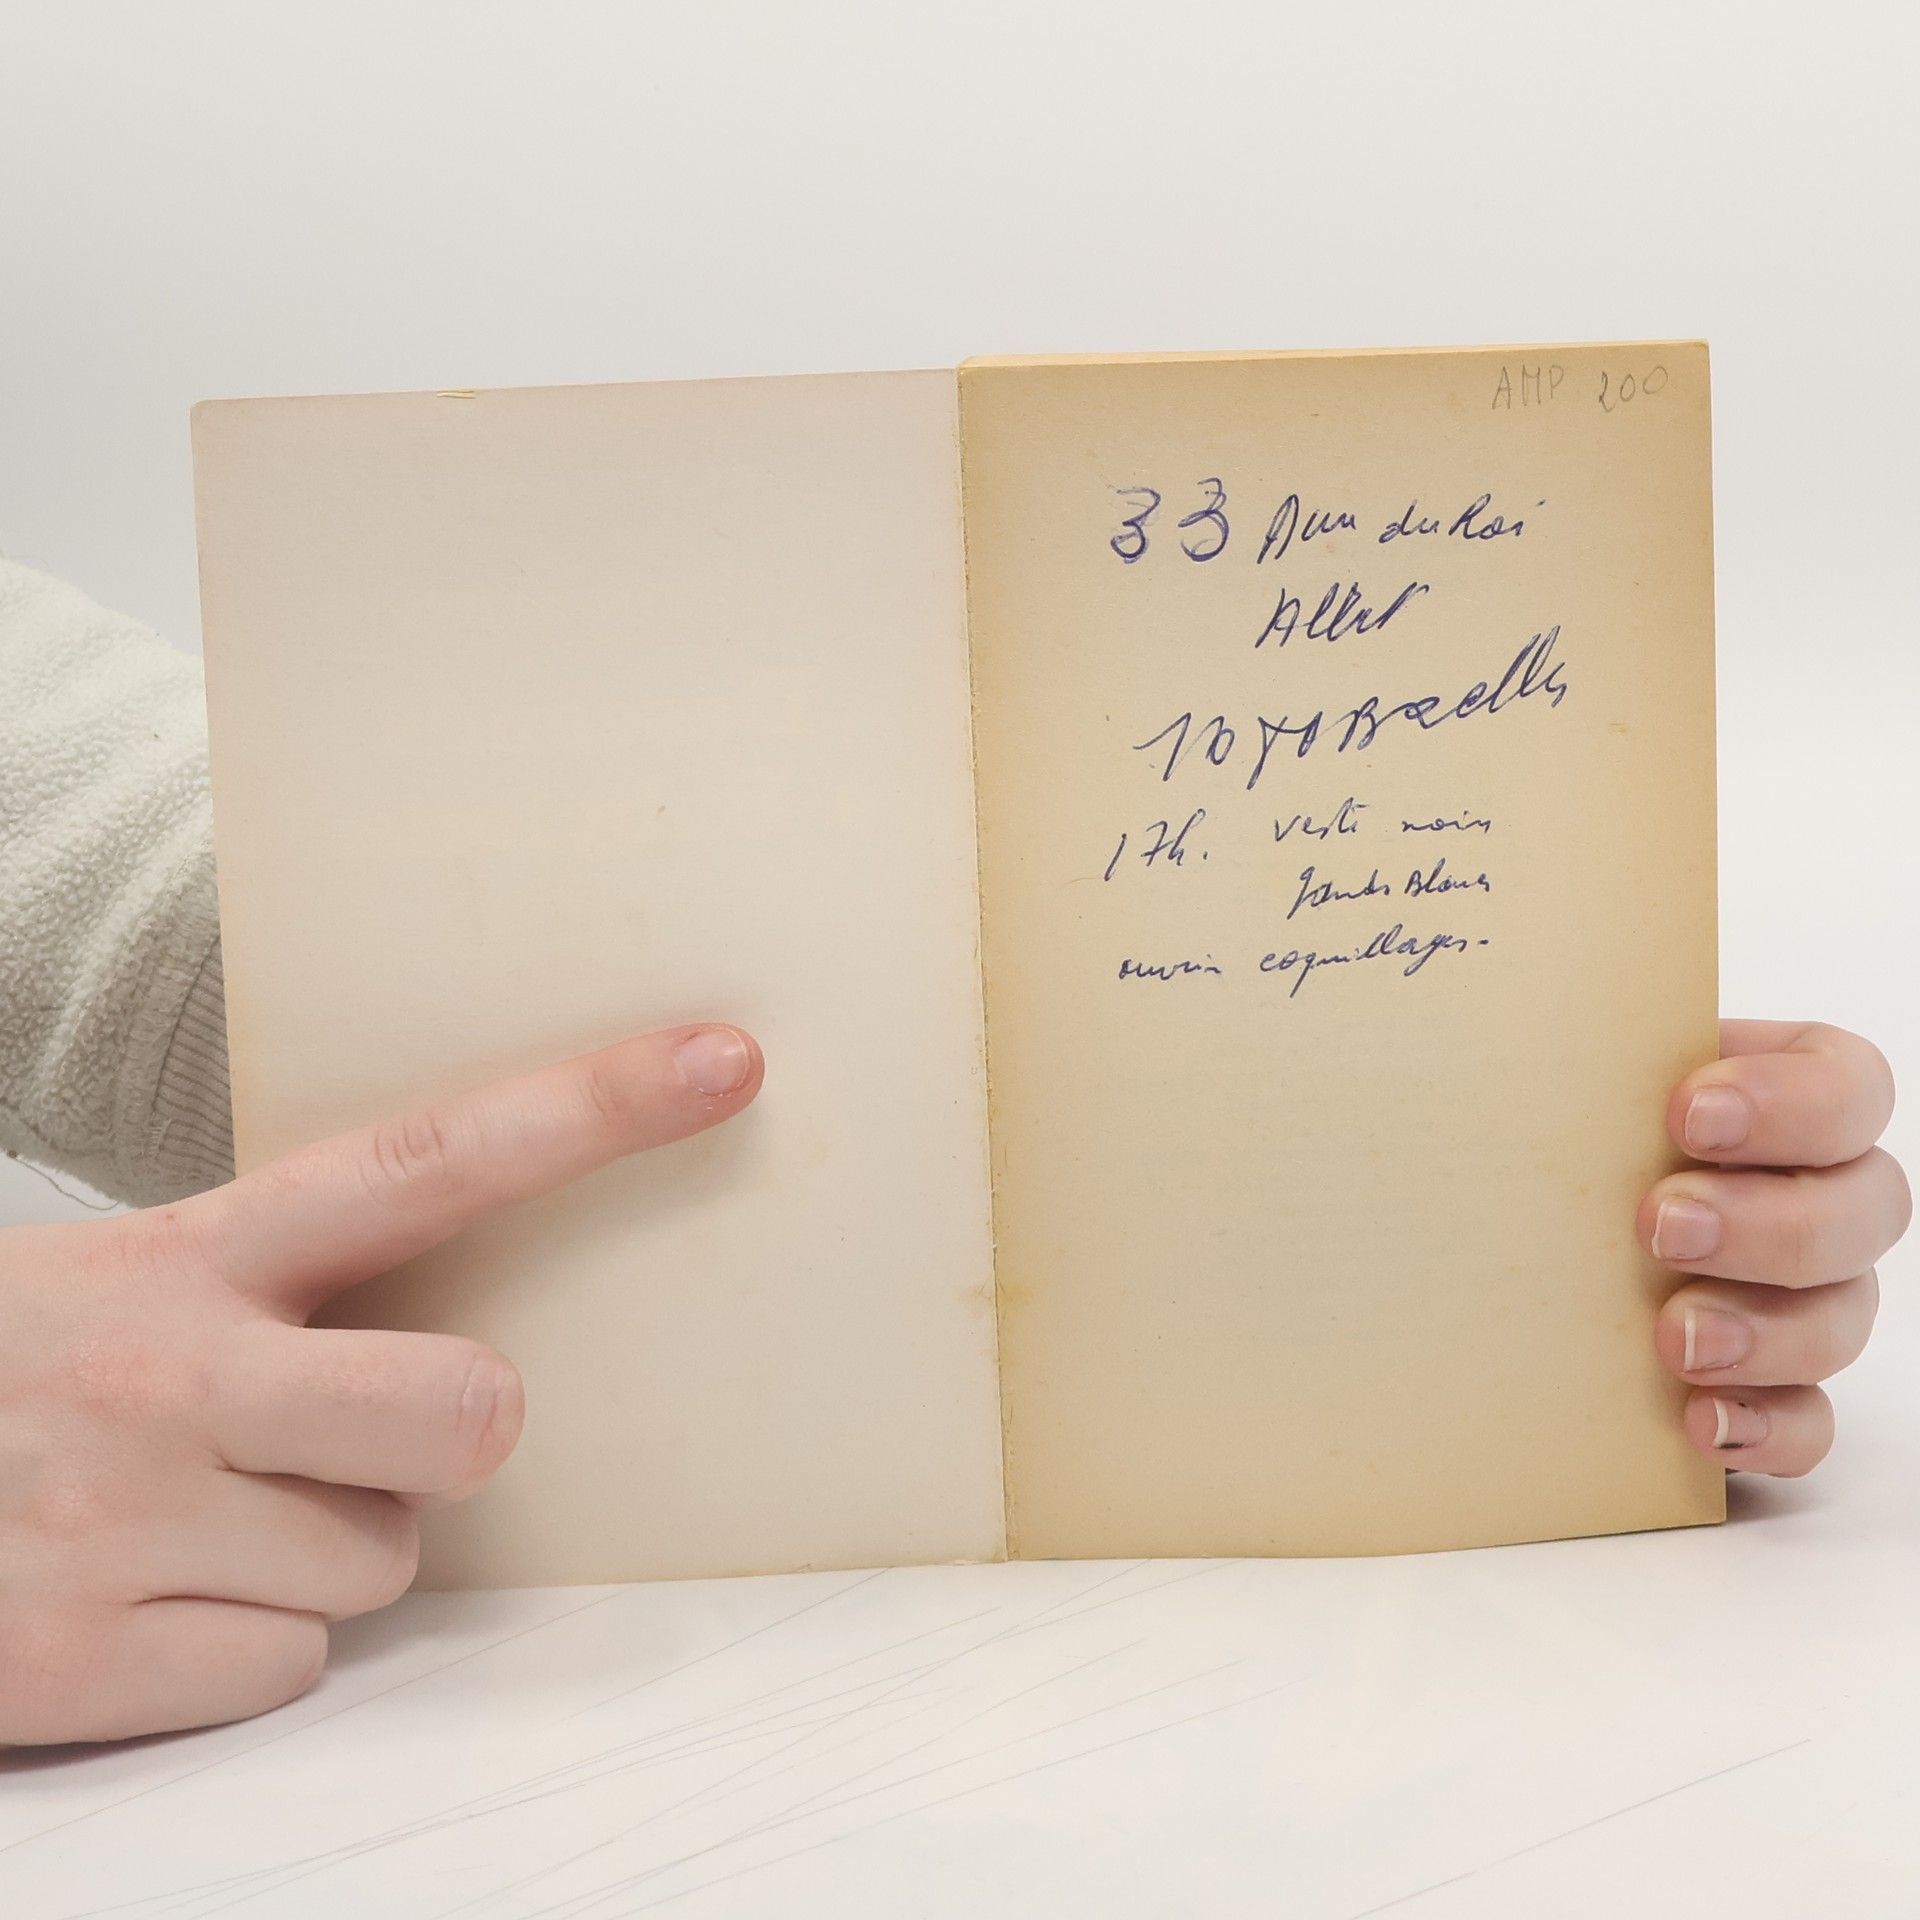 AMP 200
33 Rue du Roi
Albert
1070 Bxelles
17h. veste noire
gants Blancs
ouvrir coquillages.